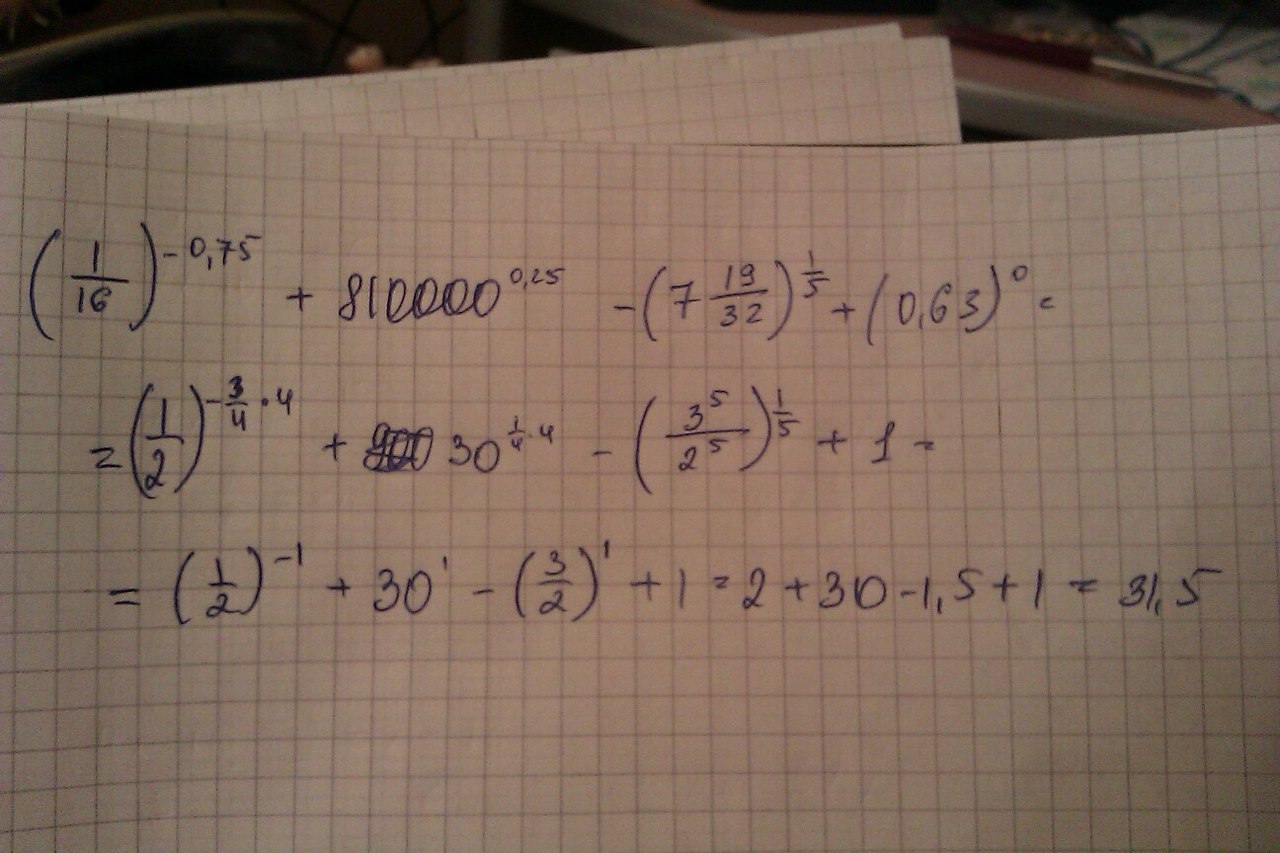 (1/16)^-0,75 + 810000^0,25 - (7 19/32)^1/5 + (0,63)^0 =
= (1/2)^-3/4·4 + 30^1/4·4 - (3^5/2^5)^1/5 + 1 =
= (1/2)^-1 + 30^1 - (3/2)^1 + 1 = 2 + 30 - 1,5 + 1 = 31,5